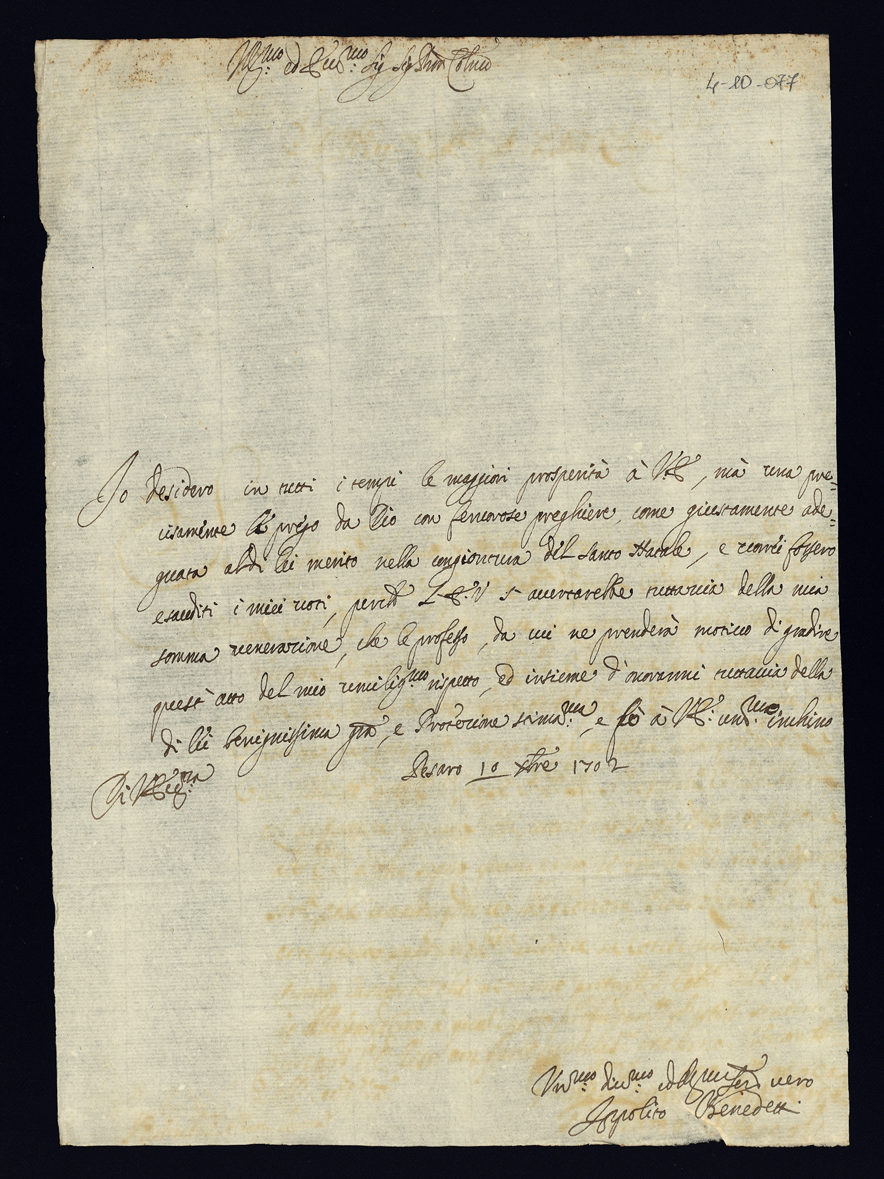 Ill:mo ed Ecc:mo Sig Sig Pron Col:mo
4-10-077
Io desidero in tutti i tempi le maggiori prosperità à V.E., mà una pre=
cisamente le prego da Dio con fervorose preghiere, come giustamente ade=
guata al di lei merito nella congiontura del Santo Natale, e vorrei fossero
esauditi i miei voti, perche L'E.V. s'accertarebbe tuttavia della mia
somma venerazione, che le professo, da cui ne prenderà motivo di gradire
quest'atto del mio umilis:mo rispetto, ed insieme d'onorarmi tuttavia della
di lei benignissima gra, e Protezione stima:ma, e fò à V.E. um:mo inchino
Di V.E. Pesaro 10 Xbre 1702
Um:mo div:mo ed Serv vero
Ippolito Benedetti